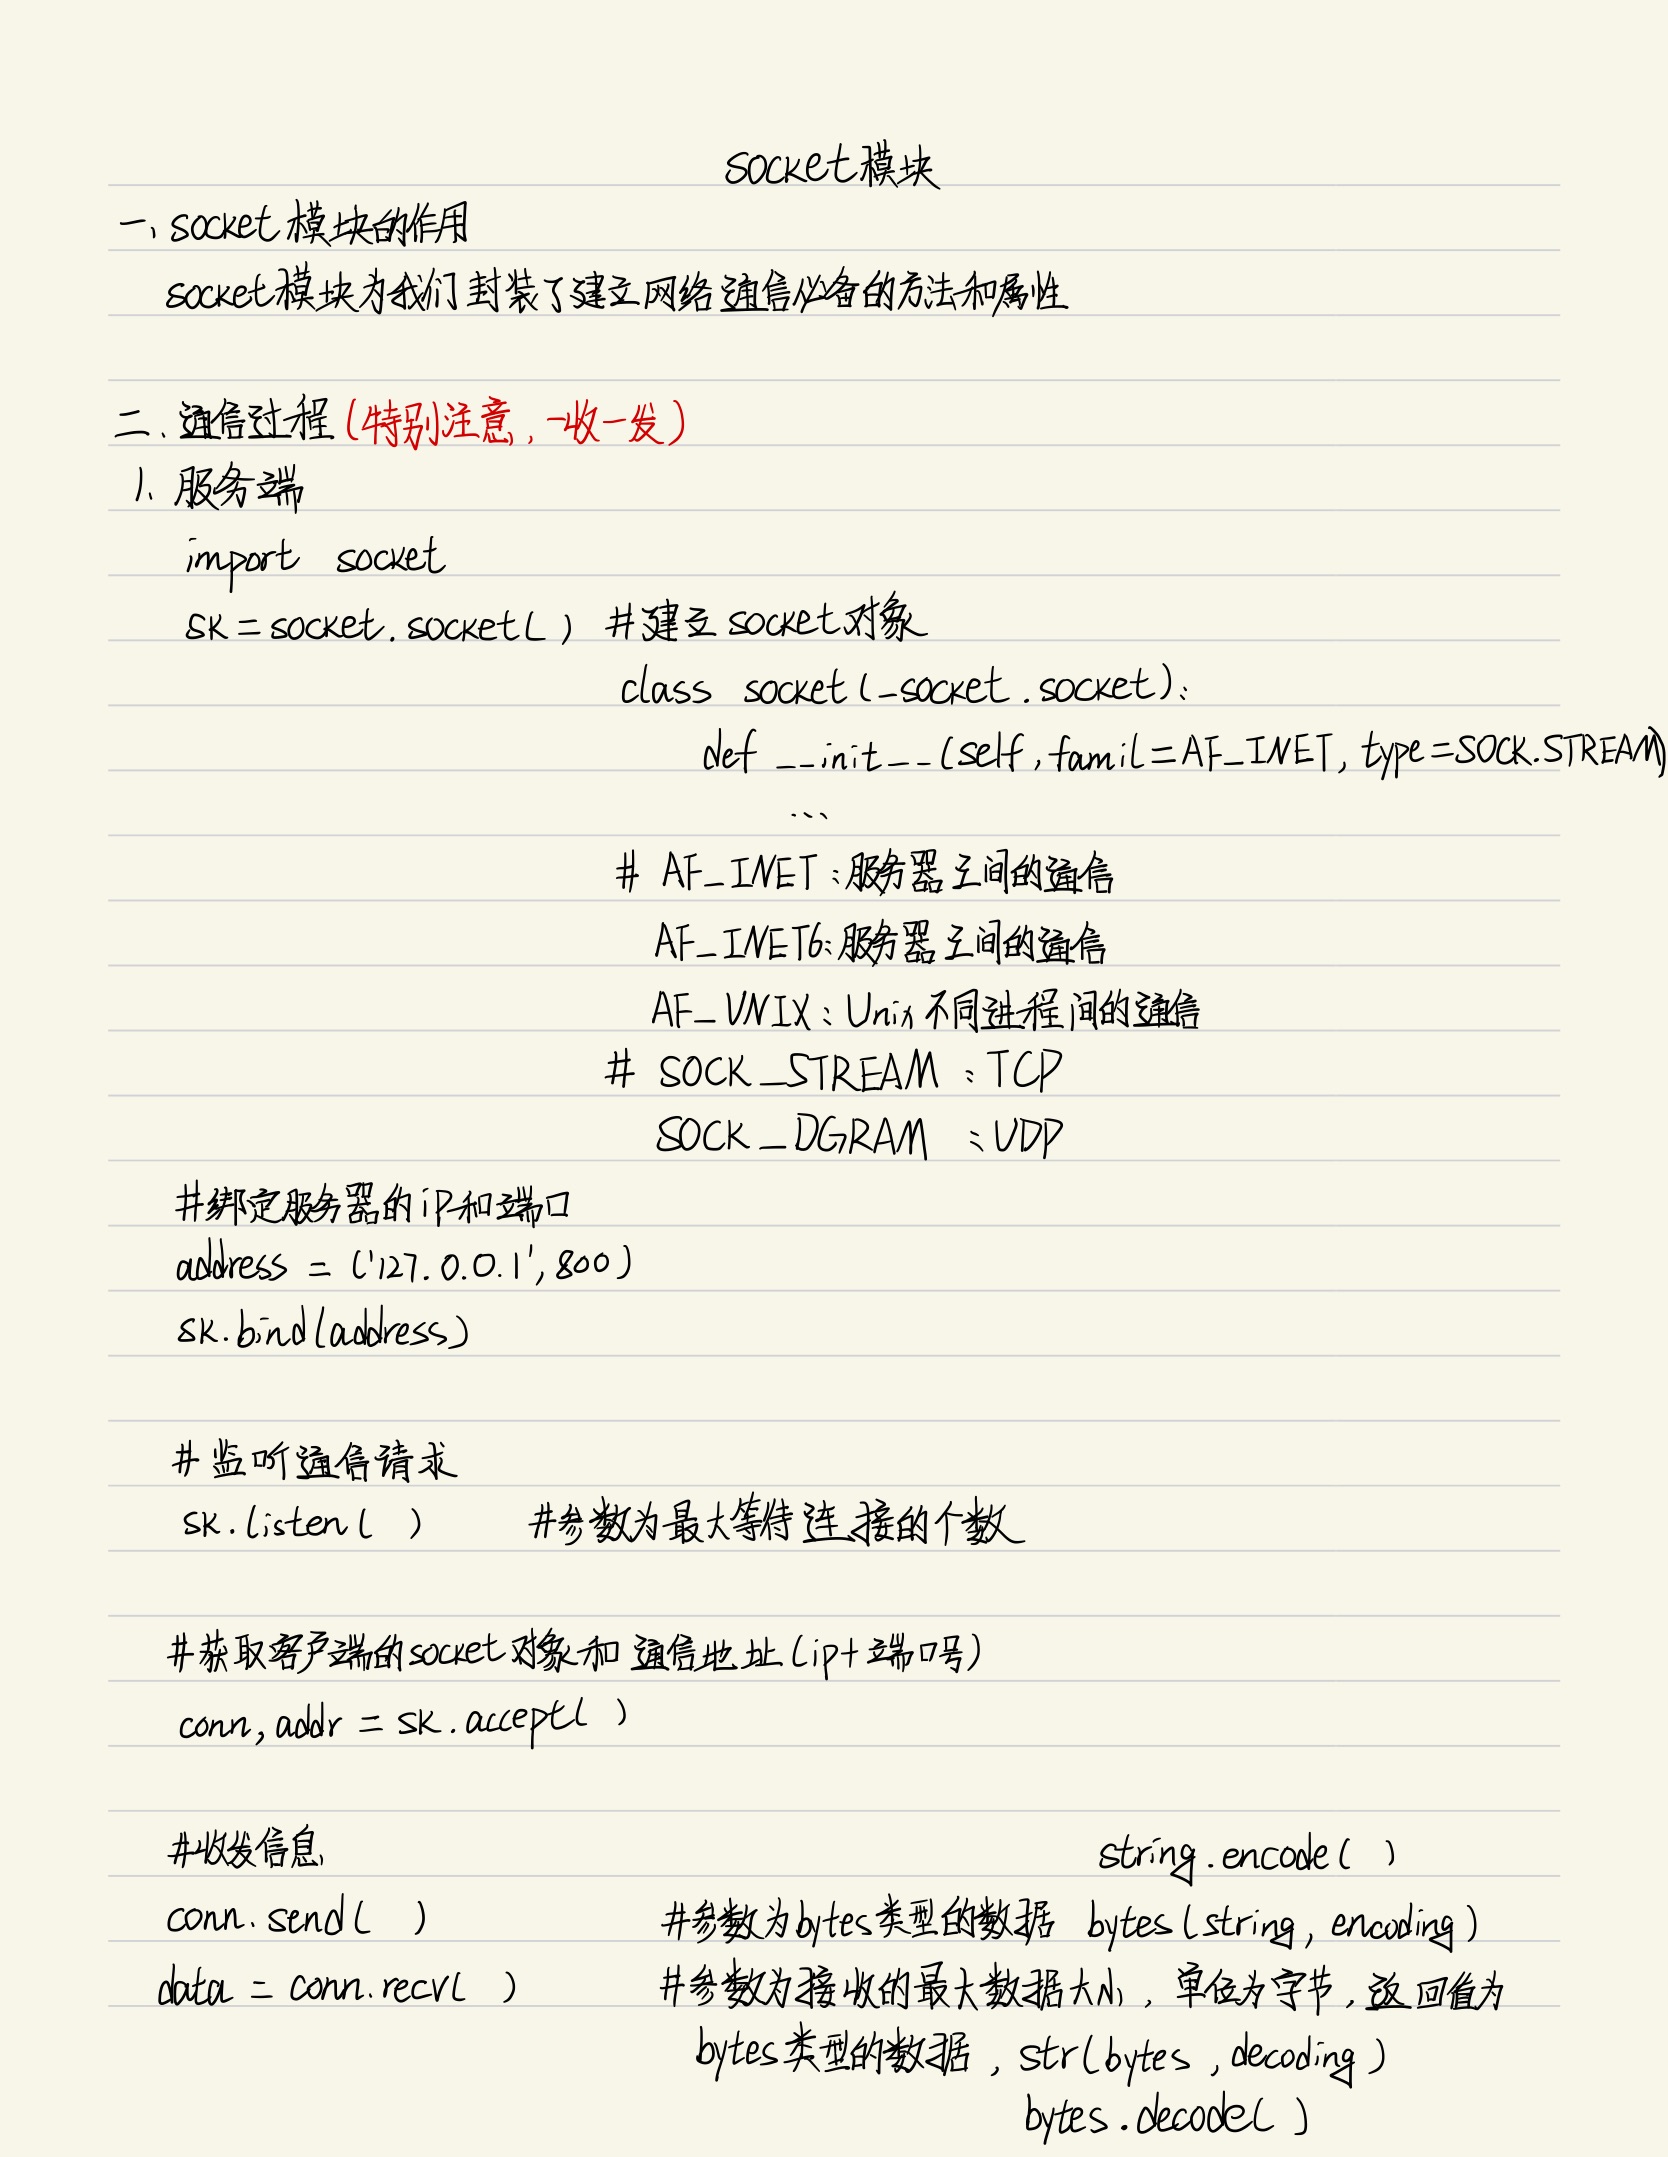 socket模块
一、socket模块的作用
socket模块为我们封装了建立网络通信必备的方法和属性
二、通信过程(特别注意,一收一发)
1、服务端
import socket
sk=socket.socket() #建立socket对象
class socket(_socket.socket):
def __init__(self,famil=AF_INET,type=SOCK.STREAM)
...
# AF_INET:服务器之间的通信
AF_INET6:服务器之间的通信
AF_UNIX:Unix不同进程间的通信
# SOCK_STREAM :TCP
SOCK_DGRAM :UDP
#绑定服务器的ip和端口
address = ('127.0.0.1',800)
sk.bind(address)
#监听通信请求
sk.listen( ) #参数为最大等待连接的个数
#获取客户端的socket对象和通信地址(ip+端口号)
conn,addr = sk.accept( )
#收发信息
string.encode( )
conn.send( ) #参数为bytes类型的数据 bytes(string, encoding)
data = conn.recv( ) #参数为接收的最大数据大小,单位为字节,返回值为
bytes类型的数据,str(bytes,decoding)
bytes.decode( )